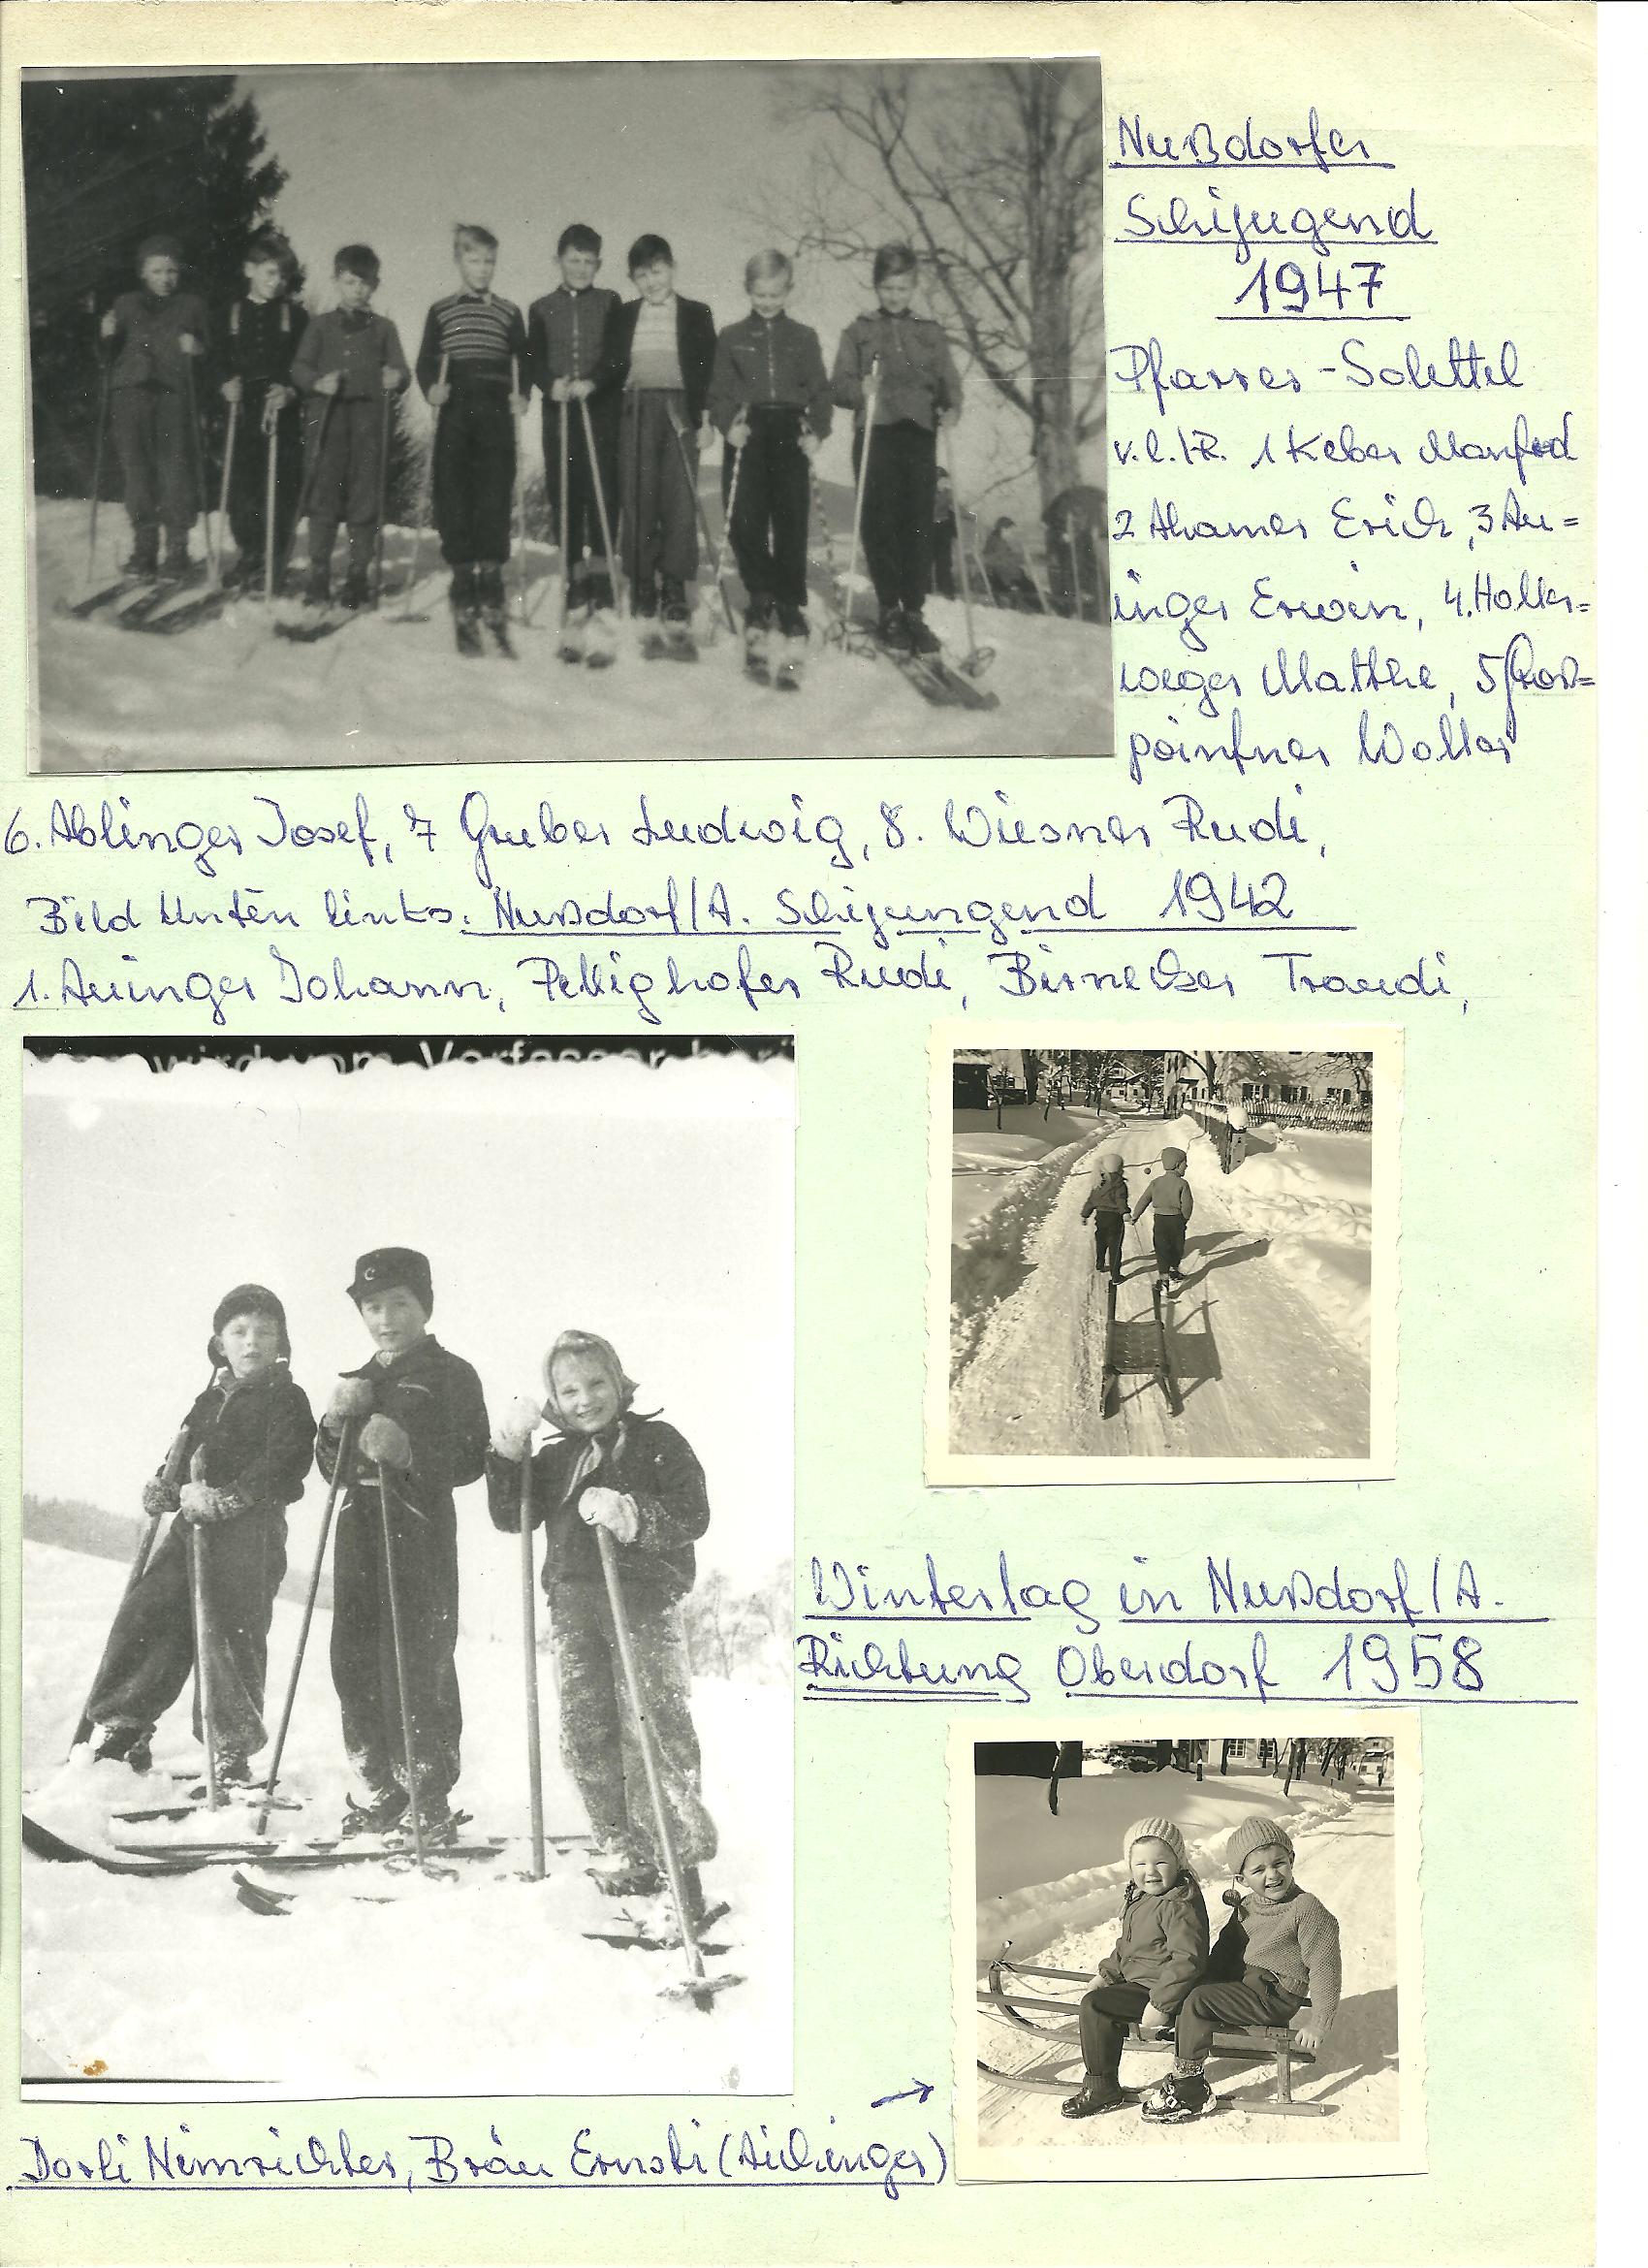 Nußdorfer
Schijugend
1947
Pfarrer-Solettel
v.l./R. 1 Keber Manfred
2 Ahamer Erich, 3 Au=
inger Erwin, 4. Holler=
weger Matthe, 5
pointner Walter
6. Ablinger Josef, 7 Gruber Ludwig, 8. Wiesner Rudi,
Bild Unten links: Nußdorf/A. Schijungend 1942
1. Auinger Johann, Pellighofer Rudi, Birnecker Traudi,
Wintertag in Nußdorf/A.
Richtung Oberdorf 1958
Dorli Nimrichter, Bräu Ernsti (Aichinger)